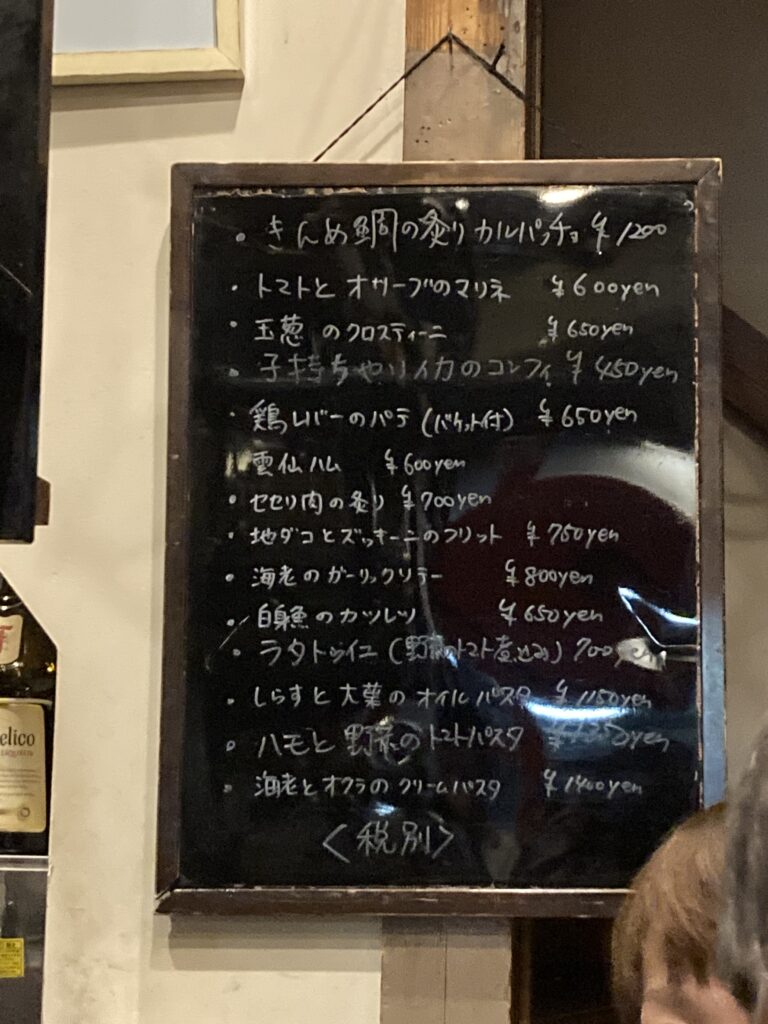 ・きんめ鯛の炙りカルパッチョ ¥1200
・トマトと オリーブのマリネ ¥600yen
・玉葱 のクロスティーニ ¥650yen
・子持ちやりイカのコンフィ ¥450yen
・鶏レバーのパテ (バケット付) ¥650yen
雲仙ハム ¥600yen
・セセリ肉の炙り ¥700yen
・地ダコとズッキーニのフリット ¥750yen
・海老のガーリックソテー ¥800yen
・白身魚のカツレツ ¥650yen
・ラタトゥイユ (野菜のトマト煮込み) 700yen
・しらすと大葉のオイルパスタ ¥1150yen
・ハモと野菜のトマトパスタ
・海老とオクラのクリームパスタ ¥1400yen
<税別>
elico